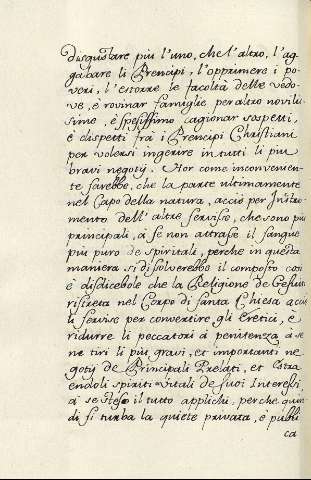 disgustare più l'uno, che l'altro, l'ag,
gabare li Prencipi, l'opprimere i po
veri, l'estorre le facoltà delle vedo
ve, è rovinar famiglie per altro novilis
sime, è spesissimo cagionar sospetti,
è dispetti frà i Prencipi Christiani
per volersi ingerire in tutti li piu
bravi negotÿ. Hor come inconvenien
te sarebbe, che la parte ultimamente
nel Capo della natura, acciò per Instro,
mento dell'altre servisse, che sono più
principali, à se non attrasse il sangue
più puro è spiritali, perche in questa
maniera si disolverebbe il composto cosi
è disdicebole che la Religione de Gesuiti
risireta nel Corpo di santa Chiesa acciò
li servise per convertire gli Eretici, è
ridurre li peccatori à penitenza à se
ne tiri li più gravi, et importanti ne
gotÿ de Principali Prelati, et Estra
endoli spiriti vitali de suoi Interessi
à se steso il tutto applichi, perche quin
di si turba la quiete privata, è publi
ca